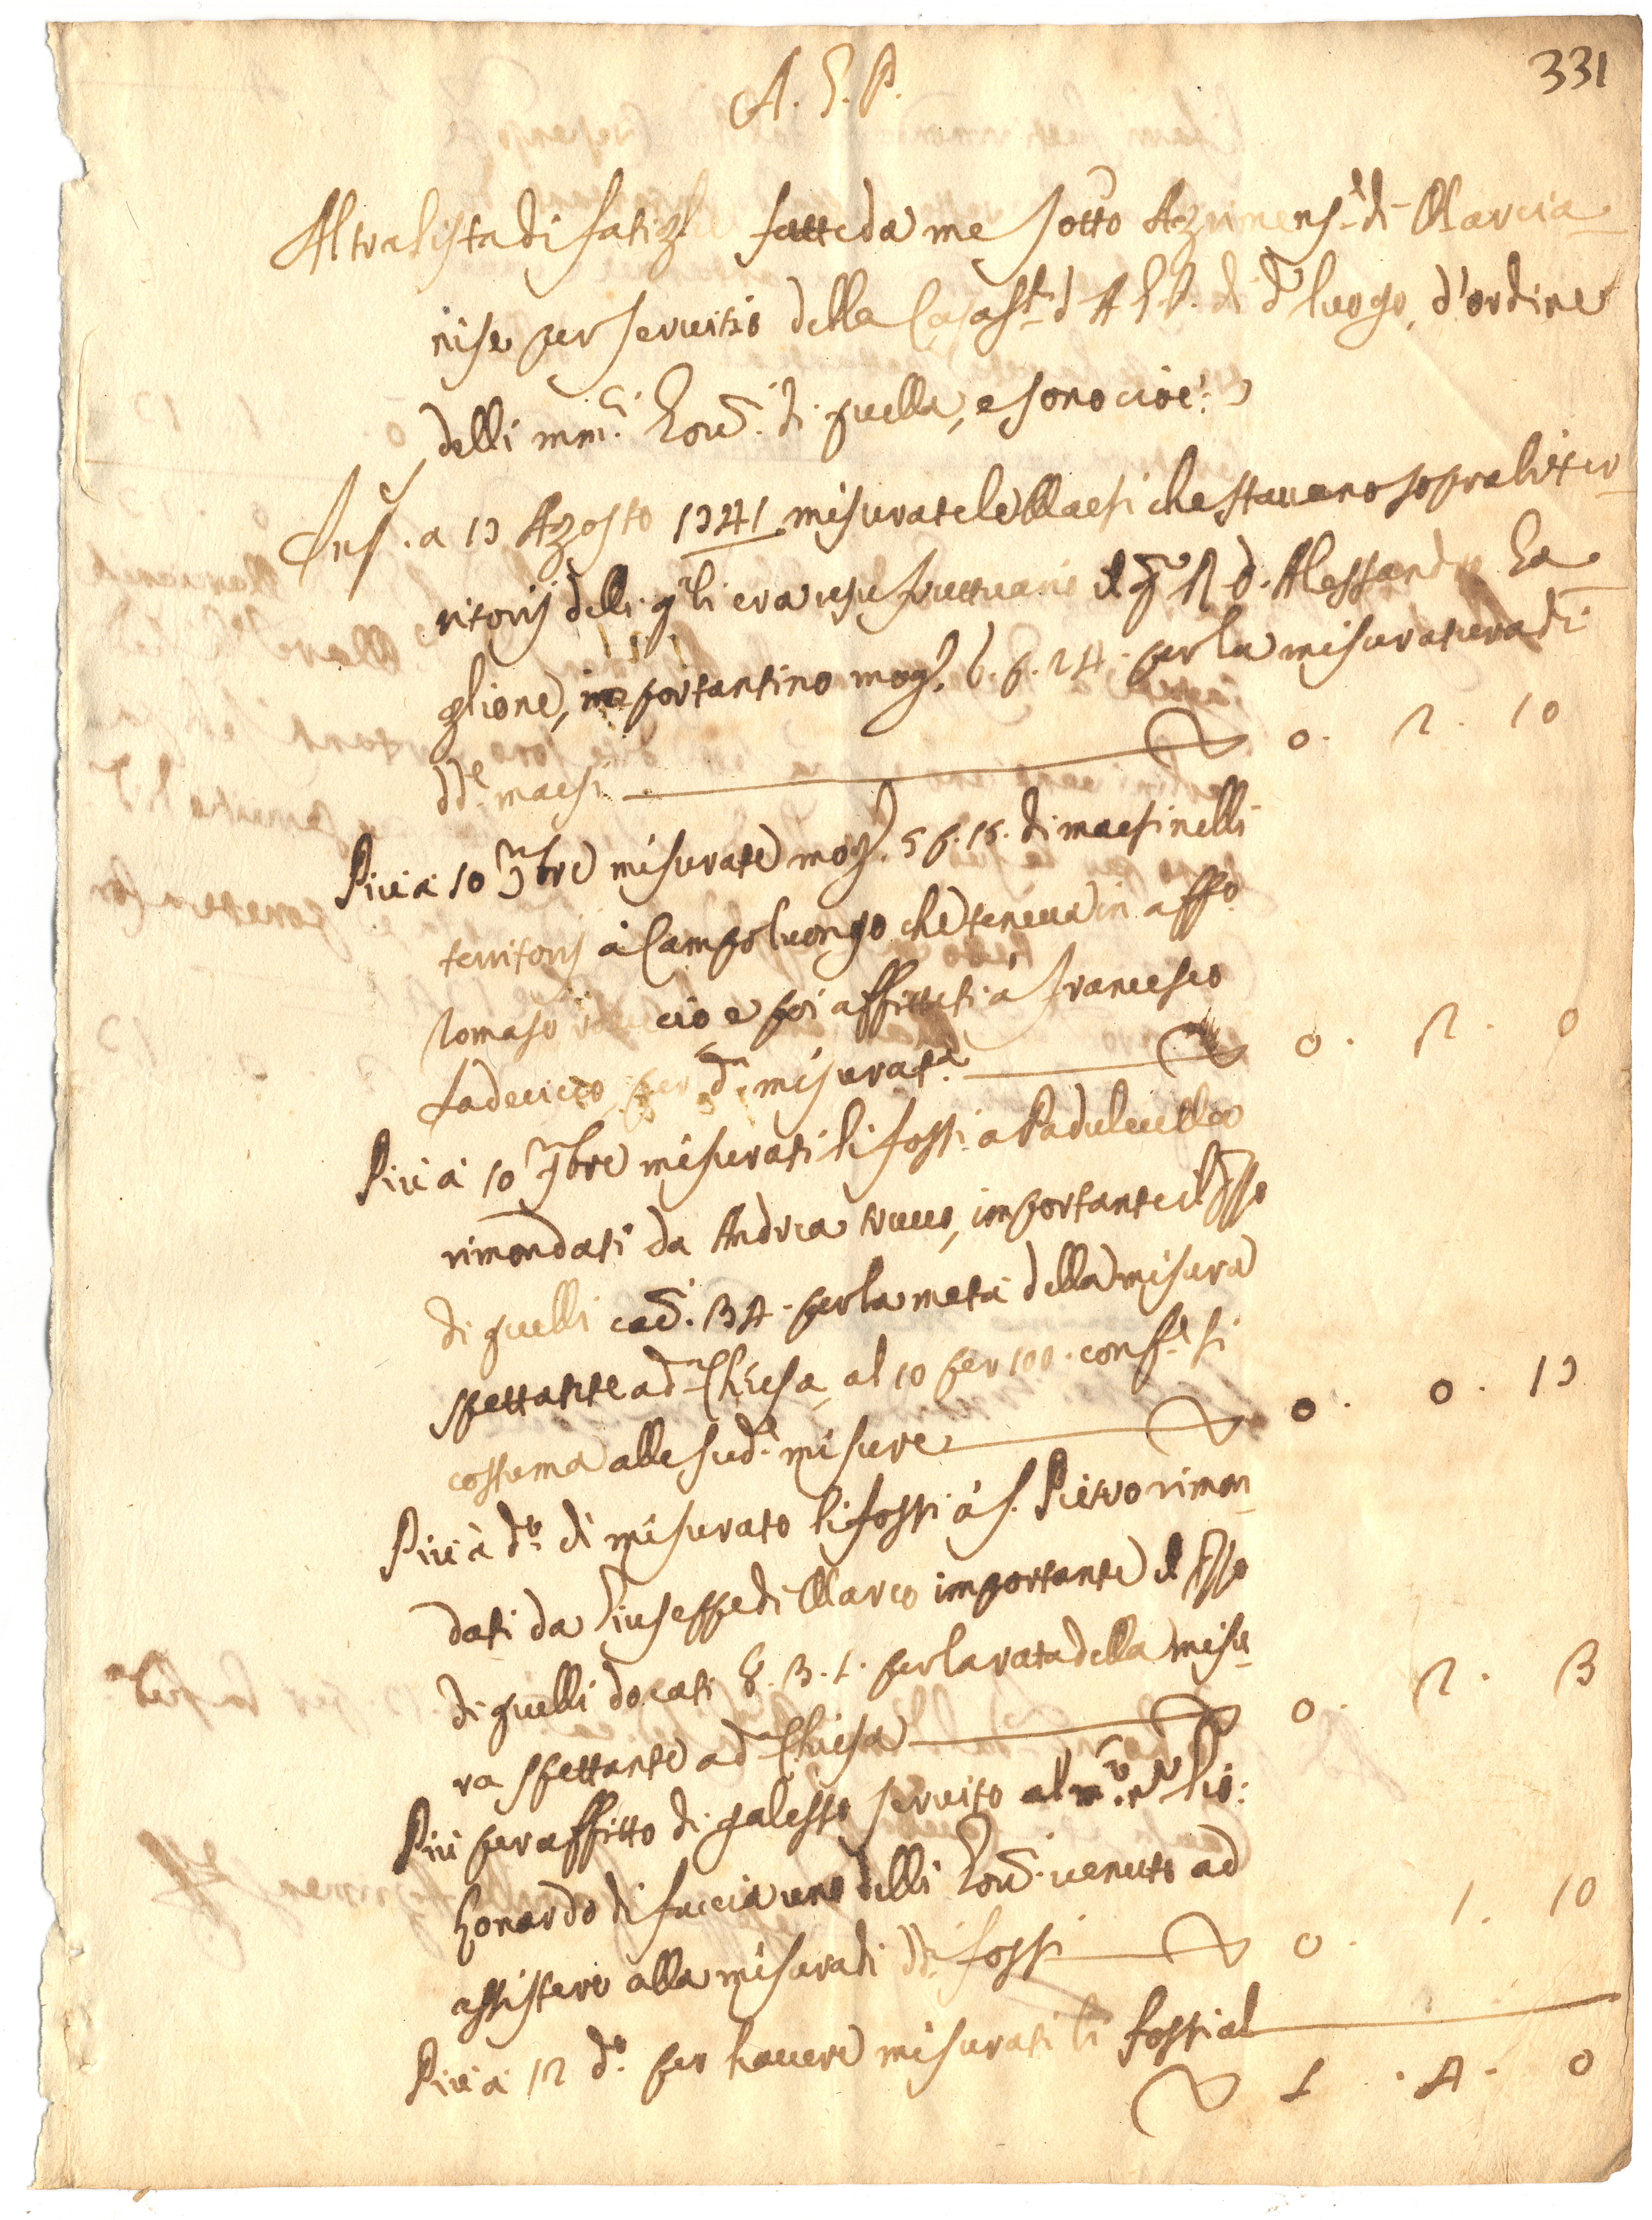 331
A. G. P.
Altra lista di fatighe fatte da me sotto Agrimens.e di Marcia
nise per servitio della Casa S.ta d A. G. P. di d.o luogo, d'ordine
delli mm.ci Gov.ri di quella, e sono cioè:
Ins. a 13 Agosto 1741 misurate le Maesi che stavano sopra li ter
ritorij delli q.li era usufruttuario il q.m R. d. Alessandro Ga
glione, importantino mog. 6. 6. 24. per la misuratura di
dd.e maesi 0. 2. 10
Più a 10 9bre misurate mog. 5 6. 15. di maesi nelli
territorij à Campoluongo che teneva in aff.o
Tomaso cio e poi affittati à Francesco
Ladevicco per d.a misurat.a 0. 2. 0
Più a 10 9bre misurati li fossi a Padulicella
rimondati da Andrea Fucco, importante il prezzo
di quelli cad. 3 4. per la metà della misura
spettante a d.a Chiesa al 10 per 100. conf.e si
costuma alle sud.e misure 0. 0. 13
Più à d.o dì misurato li fossi à S. Pietro rimon
dati da Giuseppe di Marco importante il prezzo
di quelli docati 8. 3. 1. per la rata della misu
ra spettante a d.a Chiesa 0. 2. 3
Più per affitto di galesso servito al m.co Gio:
Lonardo di Faccia uno delli Gov.ri venuto ad
assistere alla misura di dd.i fossi 0. 1. 10
Più a 12 d.o per havere misurati li fossi al
1. 4. 0